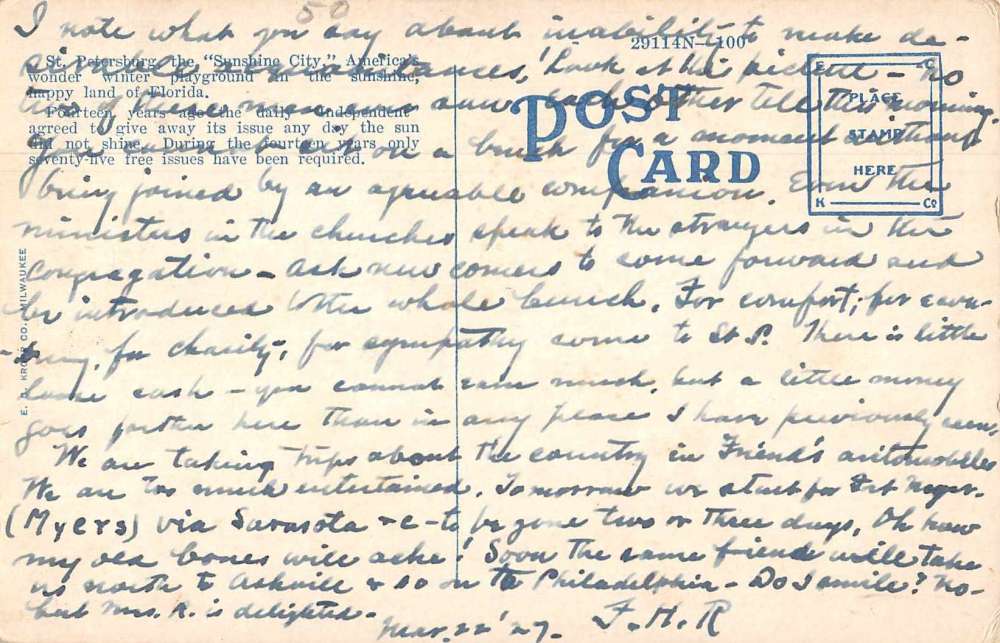 50
I note what you say about inability to make de-
sirable acquaintances. Look at his picture - no
two of these men ever saw each other till this morning.
You cannot sit on a bench for a moment without
being joined by an agreeable companion. Even the
ministers in the churches speak to the strangers in the
congregation - ask new comers to come forward and
be introduced to the whole bunch. For comfort, for
for charity, for sympathy come to St P. There is little
loose cash - you cannot earn much, but a little money
goes farther here than in any place I have previously seen.
We are taking trips about the country in Friend's automobiles
We are too much entertained. Tomorrow we start for Fort
(Myers) via Sarasota &c - to be gone two or three days. Oh how
my old bones will ache! Soon the same friend will take
us north to Ashville & so on to Philadelphia - Do I smile? No -
but Mrs. R. is delighted -
Mar. 22 '27. F. H. R
St. Petersburg, the "Sunshine City," America's
wonder winter playground in the sunshine,
happy land of Florida.
Fourteen years ago the daily Independent
agreed to give away its issue any day the sun
did not shine. During the fourteen years only
seventy-five free issues have been required.
29114N-100
POST
CARD
E C
PLACE
STAMP
HERE
K Co
E. C. KROPP CO. MILWAUKEE